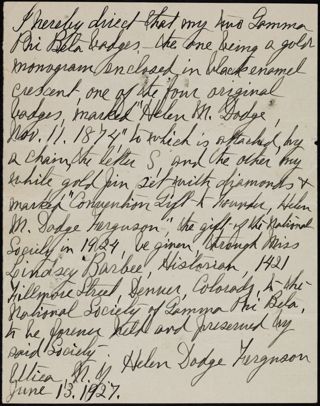 I hereby direct that my two Gamma
Phi Beta badges - the one being a gold
monogram enclosed in black enamel
crescent, one of the four original
badges, marked "Helen M. Dodge
Nov. 11, 1874," to which is attached, by
a chain, the letter S, and the other my
white gold pin set with diamonds &
marked "Convention Gift to Founder, Helen
M. Dodge Ferguson", the gift of the National
Society in 1924, be given, through Miss
Lindsey Barbee, Historian, 1421
Fillmore Street, Denver, Colorado, to the
National Society of Gamma Phi Beta,
to be forever held and preserved by
said Society.
Helen Dodge Ferguson
Utica, N.Y.
June 13, 1927.